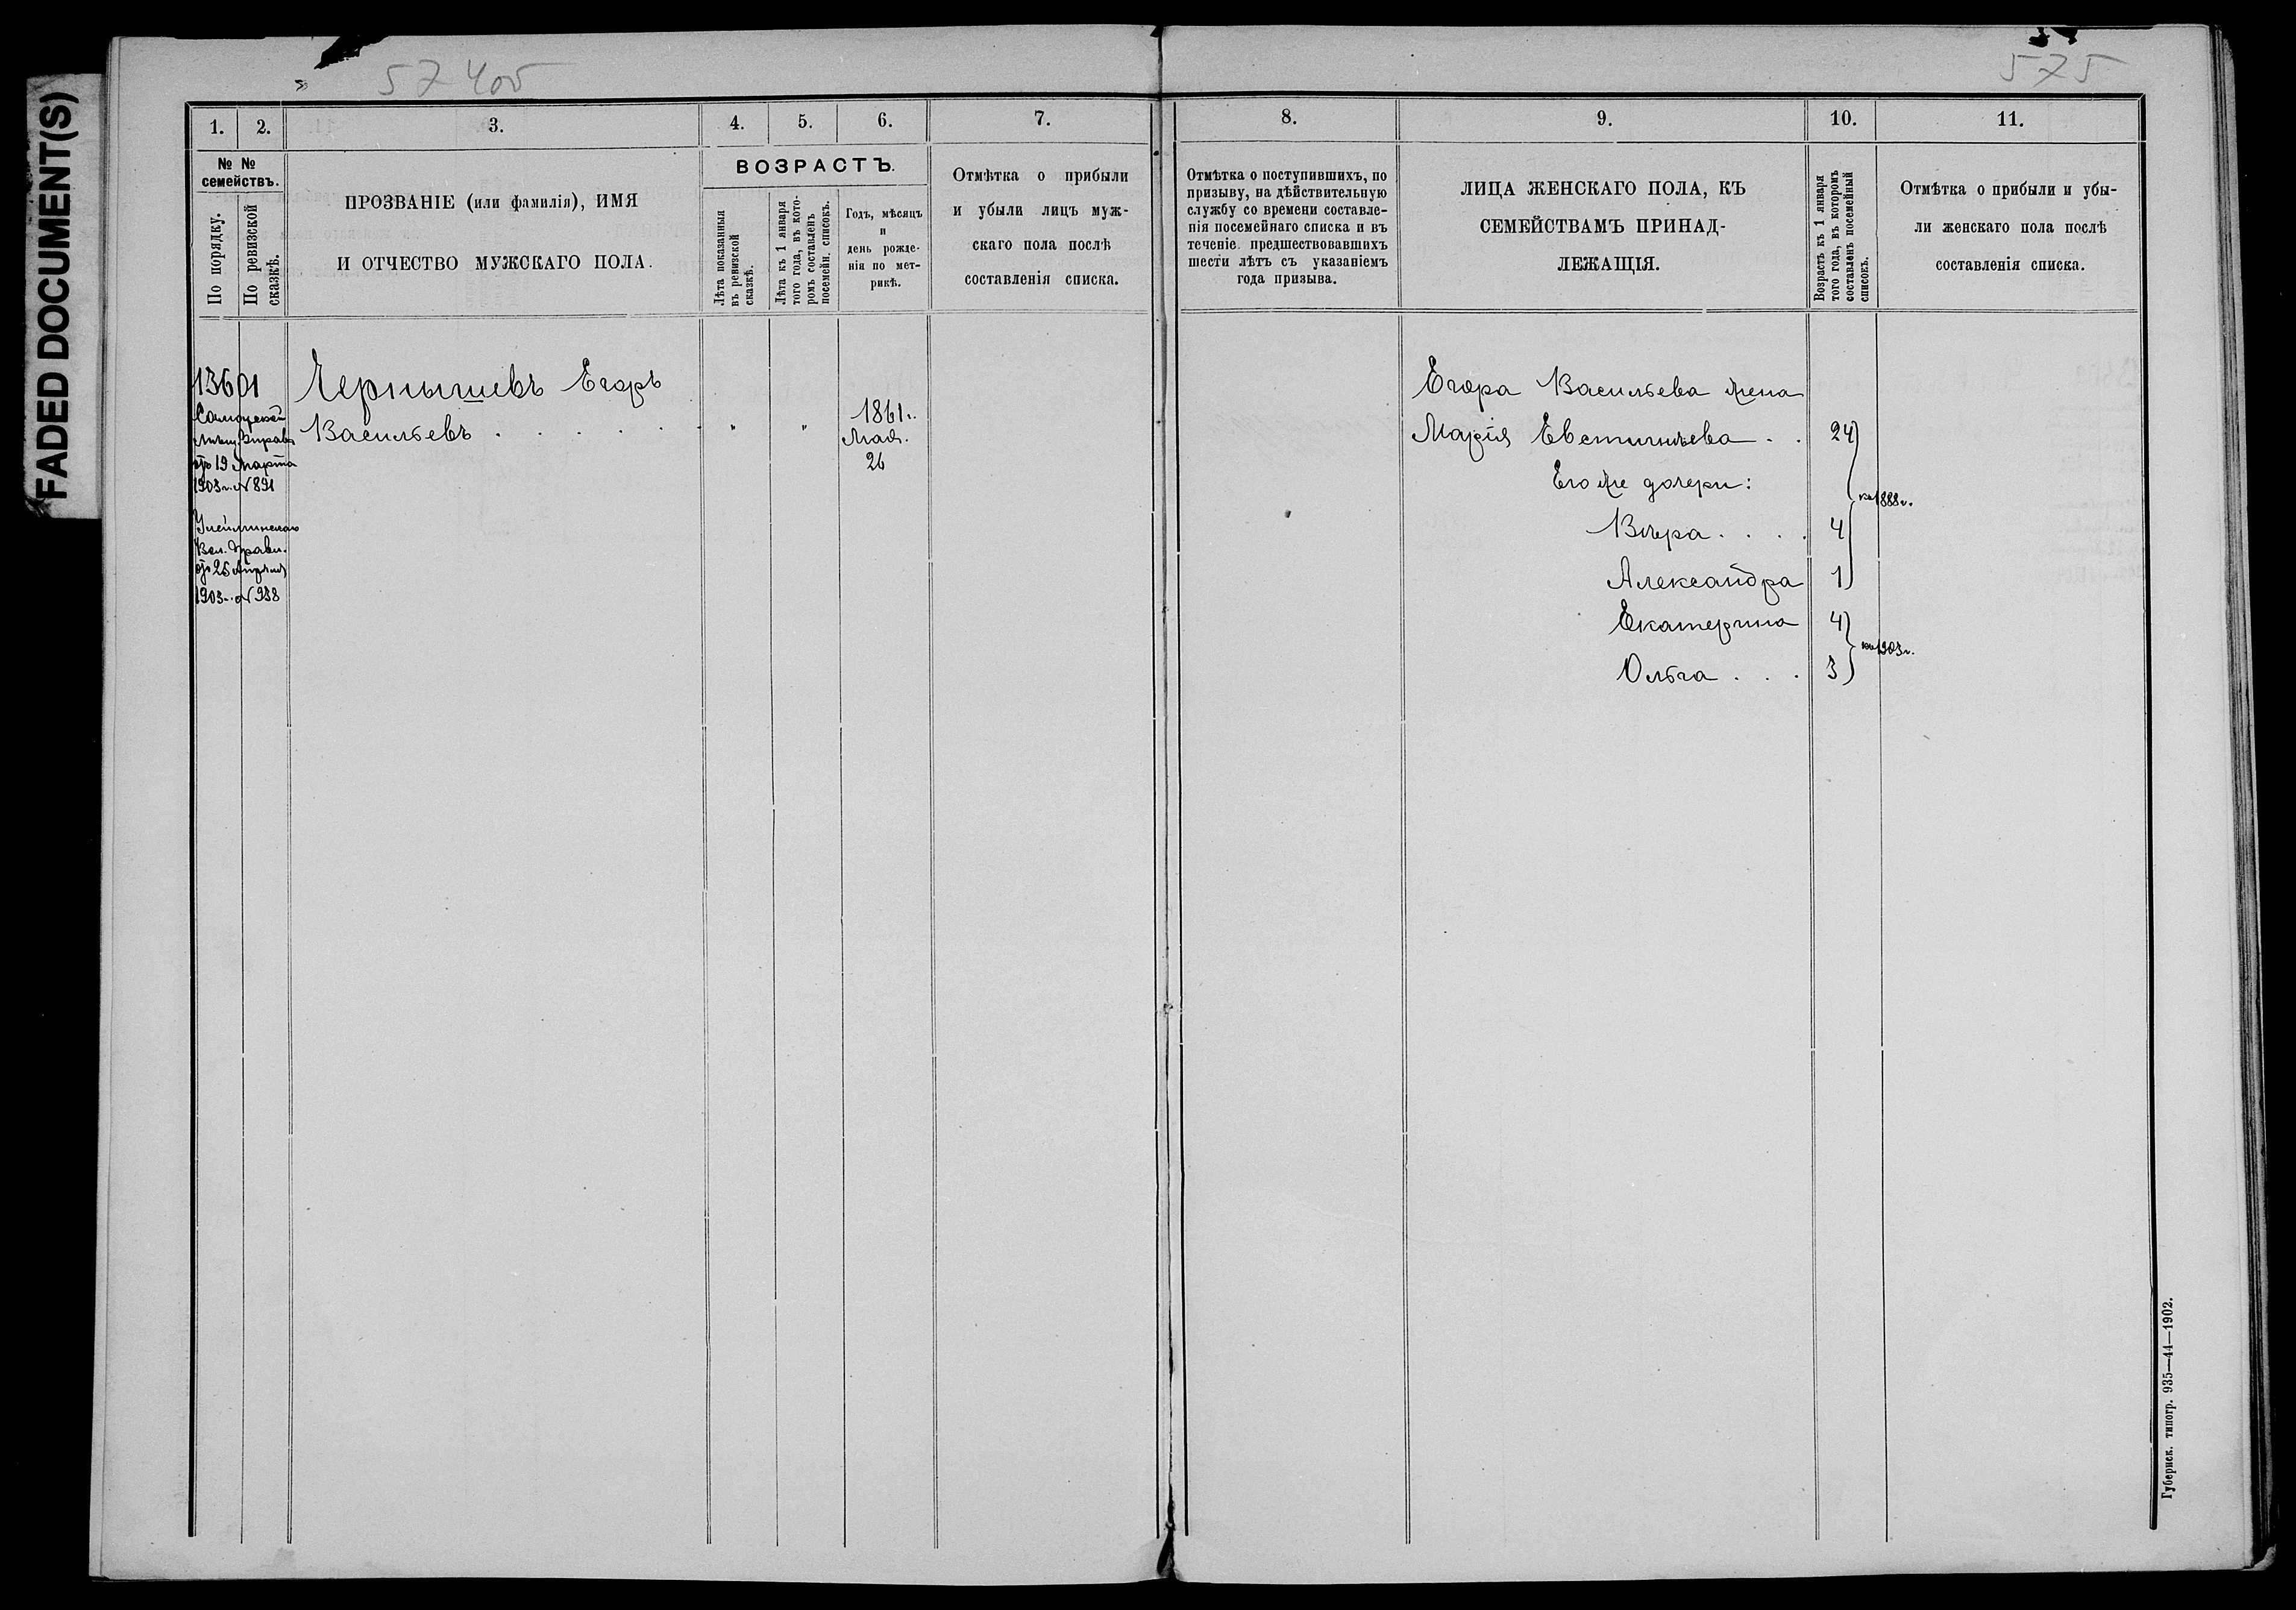 FADED DOCUMENT(S)
57 405
575
1. 2. 3. 4. 5. 6. 7.
№ №
семействъ.
По порядку.
По ревизской
сказкѣ.
ПРОЗВАНІЕ (или фамилія), ИМЯ
И ОТЧЕСТВО МУЖСКАГО ПОЛА.
ВОЗРАСТЪ.
Лѣта показанныя
въ ревизской
сказкѣ.
Лѣта къ 1 января
того года, въ кото-
ромъ составленъ
посемейн. списокъ.
Годъ, мѣсяцъ
и
день рожде-
нія по мет-
рикѣ.
Отмѣтка о прибыли
и убыли лицъ муж-
скаго пола послѣ
составленія списка.
13601
мѣщ. Управы
отъ 19 Марта
1903 г. № 891
Вол. Правл.
отъ 25 Апрѣля
1903 г. № 938
Чернышевъ Егоръ
Васильевъ . . . . . . " "
1861 г.
Мая.
26
8. 9. 10. 11.
Отмѣтка о поступившихъ, по
призыву, на дѣйствительную
службу со времени составле-
нія посемейнаго списка и въ
теченіе предшествовавшихъ
шести лѣтъ съ указаніемъ
года призыва.
ЛИЦА ЖЕНСКАГО ПОЛА, КЪ
СЕМЕЙСТВАМЪ ПРИНАД-
ЛЕЖАЩІЯ.
Возрастъ къ 1 января
того года, въ которомъ
составленъ посемейный
списокъ.
Отмѣтка о прибыли и убы-
ли женскаго пола послѣ
составленія списка.
Егора Васильева жена
Марія Евстигнѣева . . 24
Его же дочери:
къ 1888 г.
Вѣра . . . . 4
Александра 1
Екатерина 4
къ 1903 г.
Ольга . . . 3
Губернск. типогр. 935—44—1902.